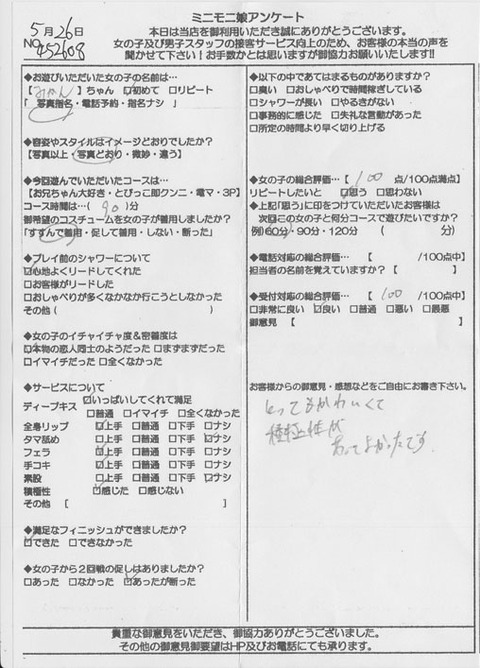 ミニモニ娘アンケート
5月26日
NO 452608
本日は当店を御利用いただき誠にありがとうございます。
女の子及び男子スタッフの接客サービス向上のため、お客様の本当の声を
聞かせて下さい!お手数かとは思いますが御協力お願いいたします!!
◆お遊びいただいた女の子の名前は…
】ちゃん ☑初めて □リピート
「 写真指名・電話予約・指名ナシ 」
◆容姿やスタイルはイメージどおりでしたか?
【写真以上・写真どおり・微妙・違う】
◆今回遊んでいただいたコースは…
【お兄ちゃん大好き・とびっこ即クンニ・電マ・3P】
コース時間は…( 90 )分
御希望のコスチュームを女の子が着用しましたか?
「すすんで着用・促して着用・しない・断った」
◆プレイ前のシャワーについて
☑心地よくリードしてくれた
□お客様がリードした
□おしゃべりが多くなかなか行こうとしなかった
その他( )
◆女の子のイチャイチャ度&密着度は
☑本物の恋人同士のようだった □まずまずだった
□イマイチだった □全くなかった
◆サービスについて
ディープキス ☑いっぱいしてくれて満足
□普通 □イマイチ □全くなかった
全身リップ ☑上手 □普通 □下手 □ナシ
タマ舐め □上手 □普通 □下手 ☑ナシ
フェラ ☑上手 □普通 □下手 □ナシ
手コキ ☑上手 □普通 □下手 □ナシ
素股 □上手 □普通 □下手 ☑ナシ
積極性 ☑感じた □感じない
その他 [ ]
◆満足なフィニッシュができましたか?
☑できた □できなかった
◆女の子から2回戦の促しはありましたか?
□あった □なかった ☑あったが断った
◆以下の中であてはまるものがありますか?
□臭い □おしゃべりで時間稼ぎしている
□シャワーが長い □やるきがない
□事務的に感じた □失礼な言動があった
□所定の時間より早く切り上げる
◆女の子の総合評価…【 100 点/100点満点】
リピートしたいと ☑思う □思わない
◆上記「思う」に印をつけていただいたお客様は
次回この女の子と何分コースで遊びたいですか?
例)60分・90分・120分 ( 分)
◆電話対応の総合評価…【 /100点中】
担当者の名前を覚えていますか?【 】
◆受付対応の総合評価…【 100 /100点中】
□非常に良い ☑良い □普通 □悪い □最悪
御意見 【 】
お客様からの御意見・感想などをご自由にお書き下さい。
とってもかわいくて
積極性が
あってよかったです
貴重な御意見をいただき、御協力ありがとうございました。
その他の御意見御要望はHP及びお電話にても承ります。